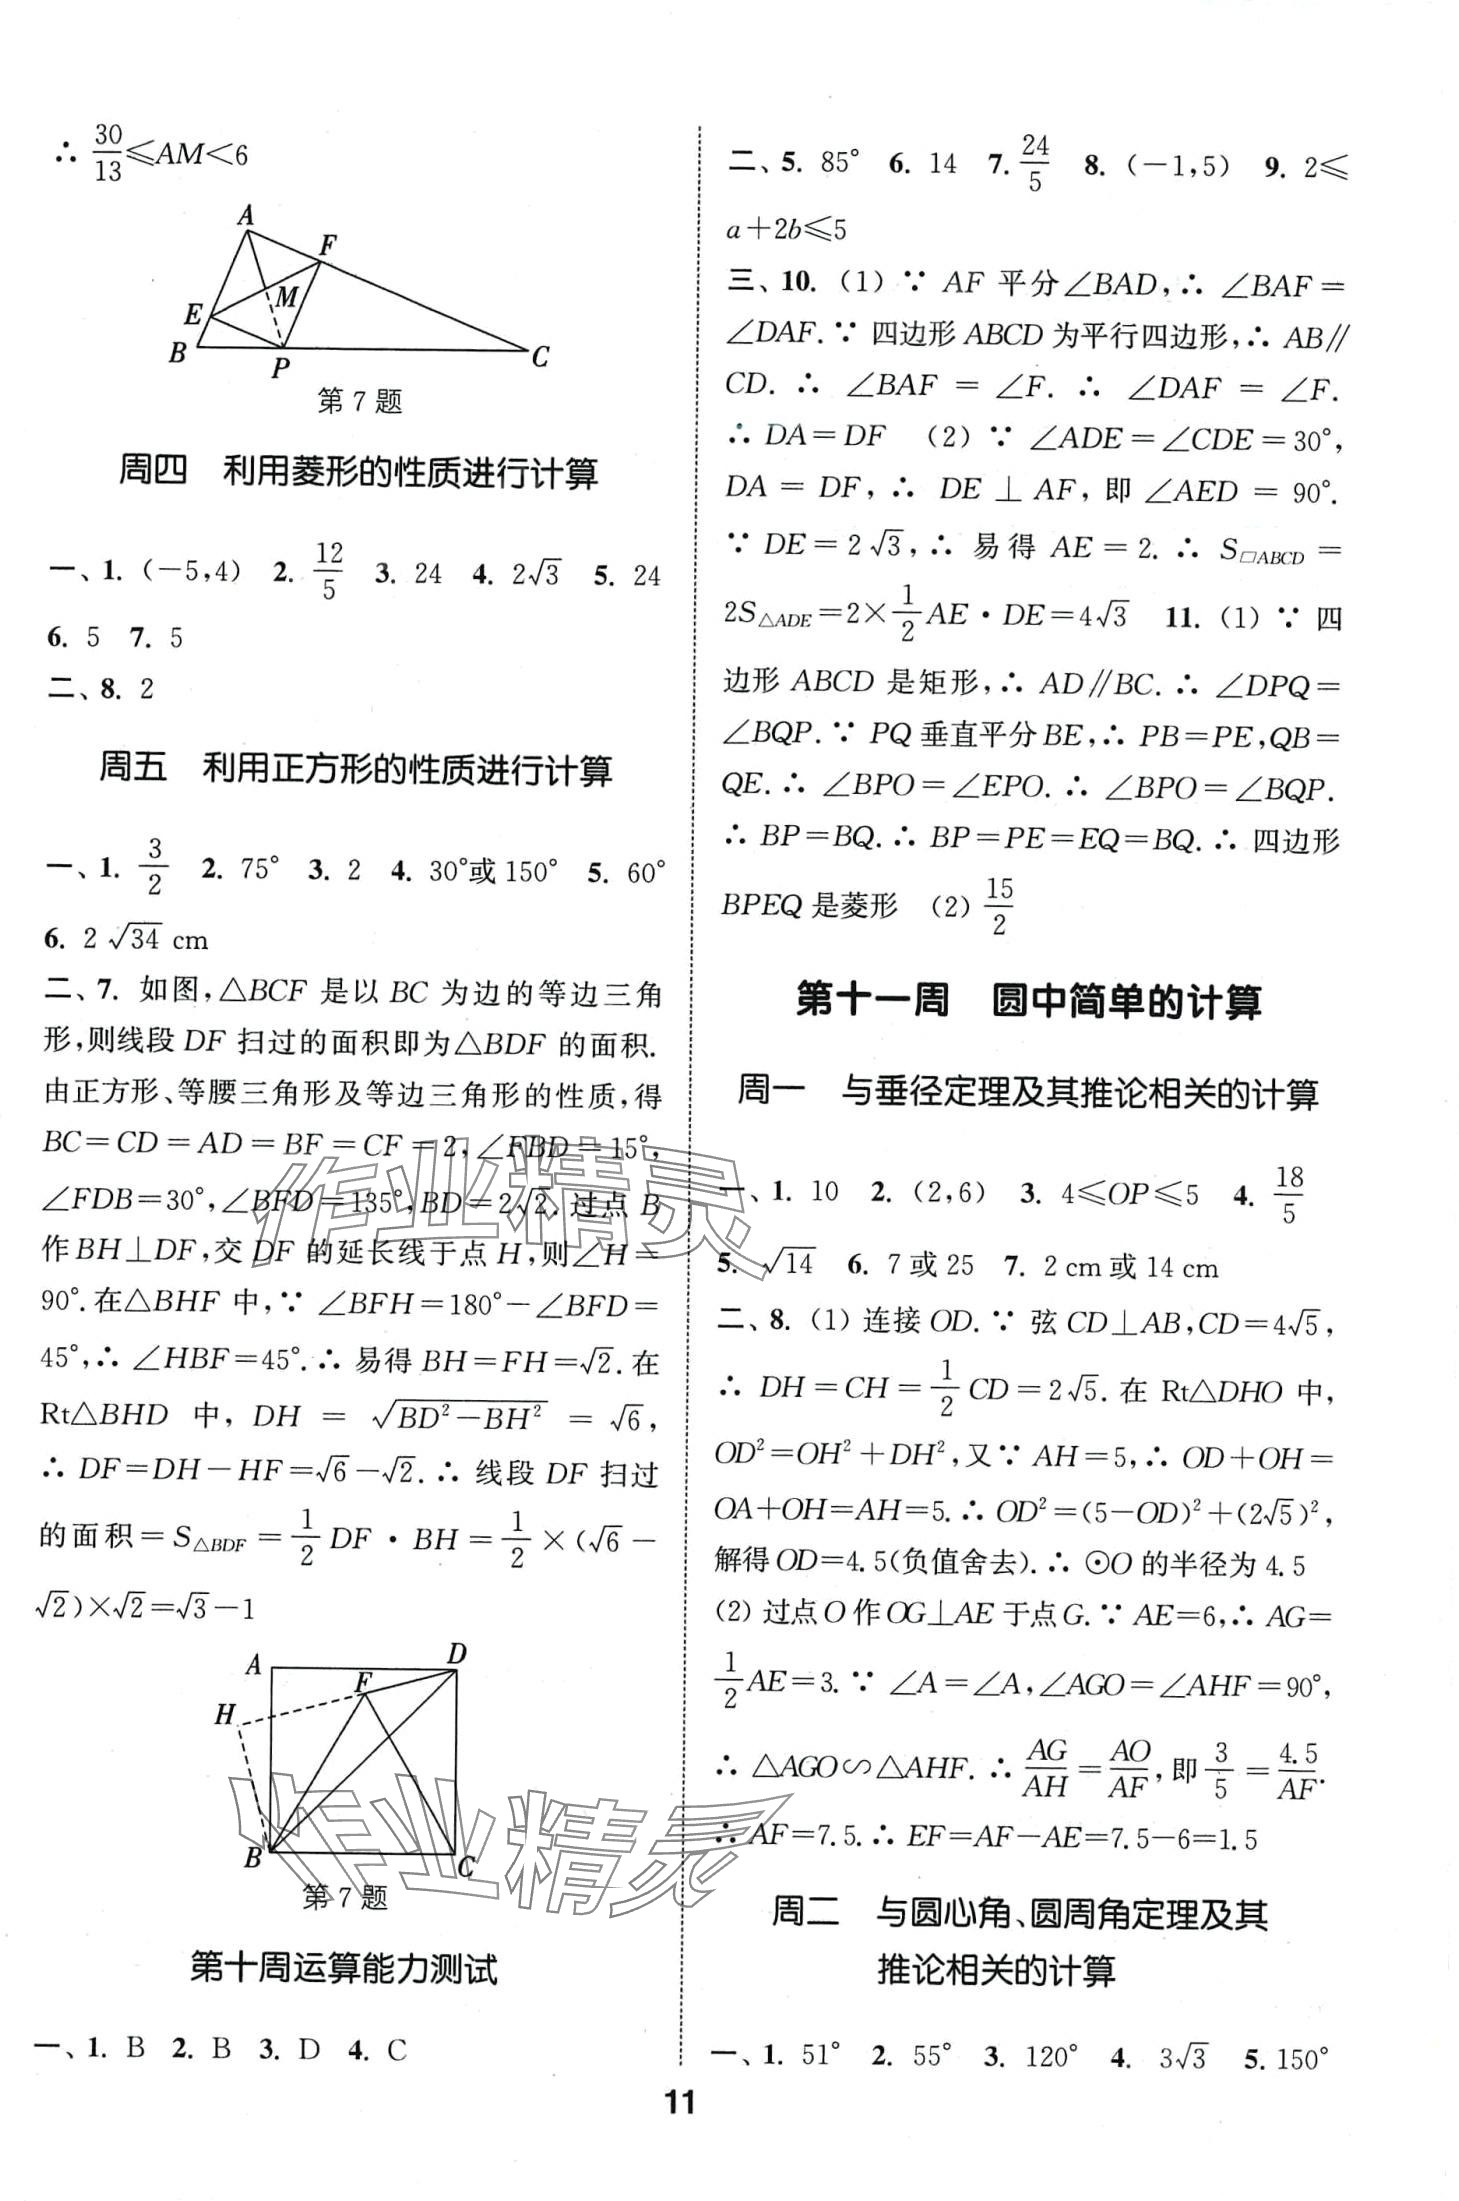 ∴ 30/13≤AM<6
A
F
M
E
B
P
C
第 7 题
周四 利用菱形的性质进行计算
一、1. (−5,4) 2. 12/5 3. 24 4. 2√3 5. 24
6. 5 7. 5
二、8. 2
周五 利用正方形的性质进行计算
一、1. 3/2 2. 75° 3. 2 4. 30°或 150° 5. 60°
6. 2√34 cm
二、7. 如图,△BCF 是以 BC 为边的等边三角
形,则线段 DF 扫过的面积即为△BDF 的面积.
由正方形、等腰三角形及等边三角形的性质,得
BC=CD=AD=BF=CF=2,∠FBD=15°,
∠FDB=30°,∠BFD=135°,BD=2√2. 过点 B
作 BH⊥DF,交 DF 的延长线于点 H,则∠H=
90°.在△BHF 中,∵ ∠BFH=180°−∠BFD=
45°,∴ ∠HBF=45°.∴ 易得 BH=FH=√2.在
Rt△BHD 中, DH = √(BD²−BH²) = √6,
∴ DF=DH−HF=√6−√2.∴ 线段 DF 扫过
的面积=S△BDF=1/2 DF·BH=1/2×(√6−
√2)×√2=√3−1
A
D
F
H
B
C
第 7 题
第十周运算能力测试
一、1. B 2. B 3. D 4. C
二、5. 85° 6. 14 7. 24/5 8. (−1,5) 9. 2≤
a+2b≤5
三、10. (1) ∵ AF 平分∠BAD,∴ ∠BAF=
∠DAF.∵ 四边形 ABCD 为平行四边形,∴ AB∥
CD. ∴ ∠BAF = ∠F. ∴ ∠DAF = ∠F.
∴ DA=DF (2) ∵ ∠ADE=∠CDE=30°,
DA = DF, ∴ DE ⊥ AF, 即 ∠AED = 90°.
∵ DE=2√3,∴ 易得 AE=2. ∴ S▱ABCD=
2S△ADE=2×1/2 AE·DE=4√3 11. (1) ∵ 四
边形 ABCD 是矩形,∴ AD∥BC. ∴ ∠DPQ=
∠BQP.∵ PQ 垂直平分 BE,∴ PB=PE,QB=
QE.∴ ∠BPO=∠EPO.∴ ∠BPO=∠BQP.
∴ BP=BQ.∴ BP=PE=EQ=BQ.∴ 四边形
BPEQ 是菱形 (2) 15/2
第十一周 圆中简单的计算
周一 与垂径定理及其推论相关的计算
一、1. 10 2. (2,6) 3. 4≤OP≤5 4. 18/5
5. √14 6. 7 或 25 7. 2 cm 或 14 cm
二、8. (1) 连接 OD.∵ 弦 CD⊥AB,CD=4√5,
∴ DH=CH=1/2 CD=2√5.在 Rt△DHO 中,
OD²=OH²+DH²,又∵ AH=5,∴ OD+OH=
OA+OH=AH=5.∴ OD²=(5−OD)²+(2√5)²,
解得 OD=4.5(负值舍去).∴ ⊙O 的半径为 4.5
(2) 过点 O 作 OG⊥AE 于点 G.∵ AE=6,∴ AG=
1/2 AE=3.∵ ∠A=∠A,∠AGO=∠AHF=90°,
∴ △AGO∽△AHF.∴ AG/AH=AO/AF,即 3/5=4.5/AF.
∴ AF=7.5.∴ EF=AF−AE=7.5−6=1.5
周二 与圆心角、圆周角定理及其
推论相关的计算
一、1. 51° 2. 55° 3. 120° 4. 3√3 5. 150°
11
作业精灵
作业精灵